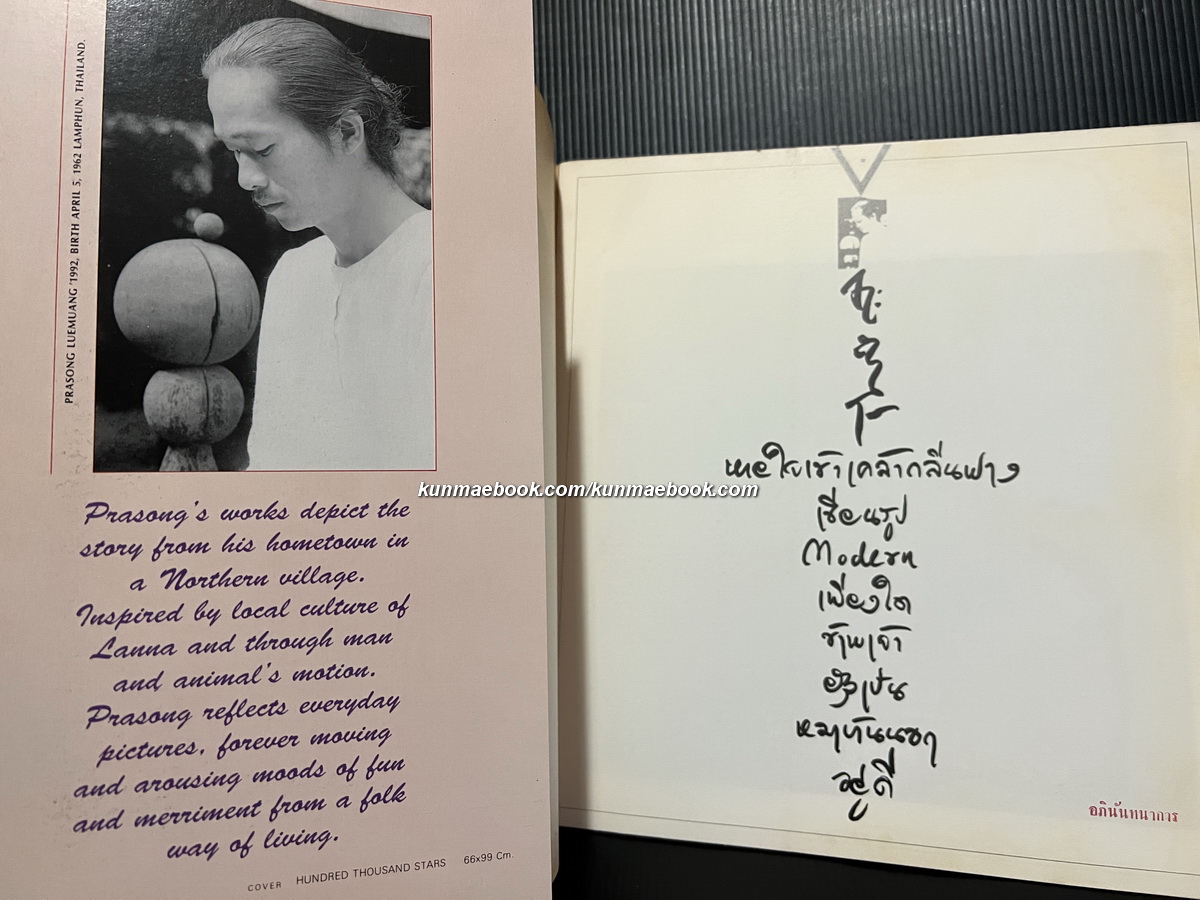 PRASONG LUEMUANG '1992, BIRTH APRIL 5, 1962 LAMPHUN, THAILAND.
Prasong's works depict the
story from his hometown in
a Northern village.
Inspired by local culture of
Lanna and through man
and animal's motion.
Prasong reflects everyday
pictures, forever moving
and arousing moods of fun
and merriment from a folk
way of living.
COVER HUNDRED THOUSAND STARS 66x99 Cm.
kunmaebook.com/kunmaebook.com
เขียนรูป
Modern
เพียงใด
ข้าพเจ้า
ยังเป็น
อยู่ดี
อภินันทนาการ